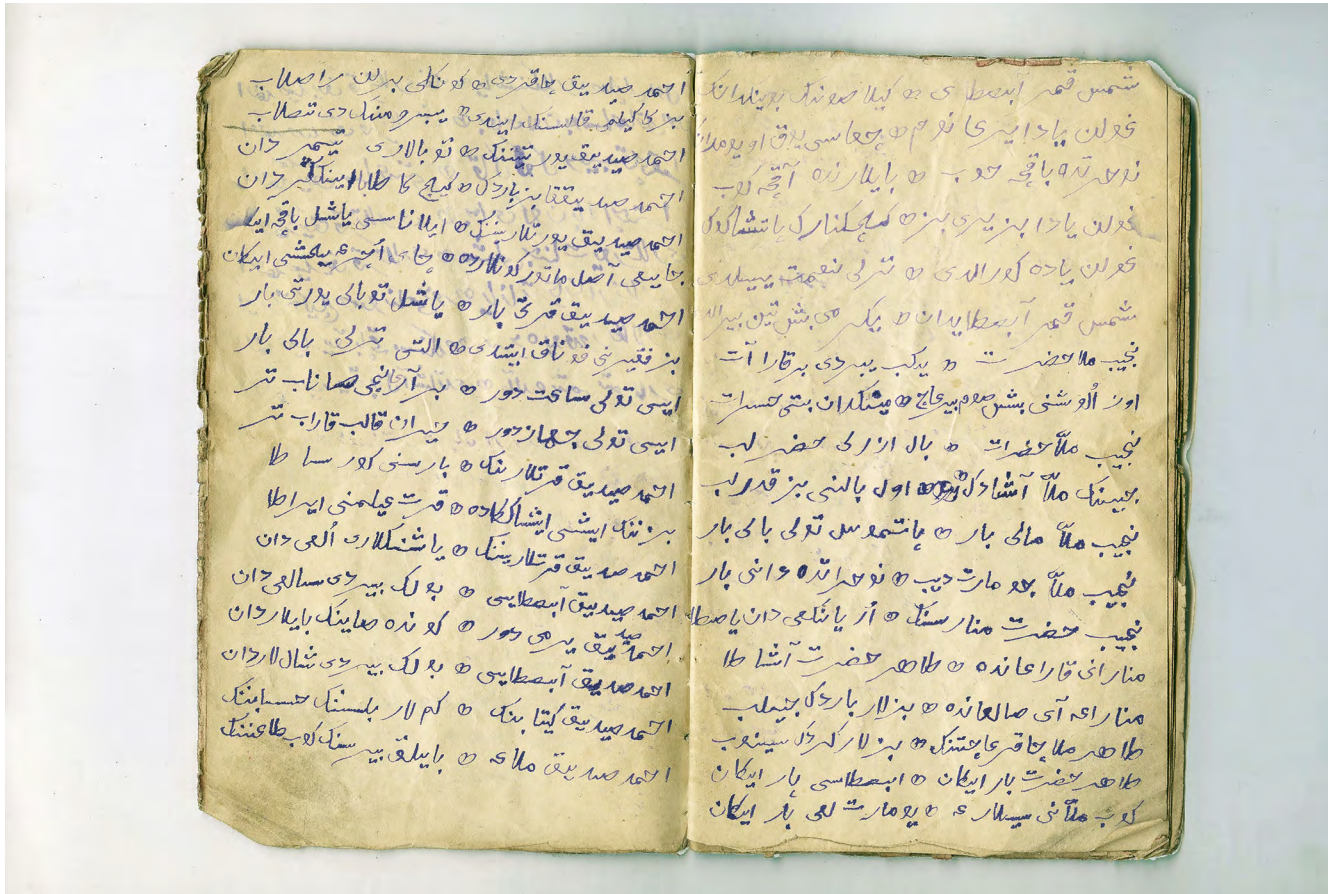 شمس قمر ابصطای ۞ کیلا صوندک بویندانک
غولن یادا ایرغا نوم ۞ چغاسی یوق اویومدان
نوحرتده باقچه حوب ۞ بایلارنده آقچه کوب
غولن یادا بز یری بز ۞
غولن یاده کورالدی ۞ تترلی نعمت ییلدی
شمس قمر آبصطایدان ۞ یکرمی بش تین بیرالا
نجیب ملا حضرت ۞ یرکب بیردی بر قارا آت
اون اُلوشنی بشل صوم بیرغاچ ۞ میندکدان بتی حسرات
نجیب ملاّ حضرات ۞ بال ازرلی حضرلب
نجیبنک ملاّ آشادک ۞ اول بالنی بز قدرلب
نجیب ملاّ مالی بار ۞ باتموس تولی بالی بار
نجیب ملاّ جومارت دیب ۞ نوحراتده دانی بار
نجیب حضرت منارسنک ۞ اُزیانکغی دان یاصطا
منارانی قاراغانده ۞ طاهر حضرت آشاطا
مناراغه آی صالغانده ۞ بزلار باردک جییلب
طاهر ملا چاقرغاچتنک ۞ بزلار کردک سیینوب
طاهر حضرت بار ایکان ۞ ابصطاسی بار ایکان
کوب ملاّنی سیلارغه ۞ یومارت لغی بار ایکان
احمد صیدیق چاقردی ۞ کونکلی برلن راصلاب
بزکا کیلم قالسنک ایندی ۞ بیبرومنک دی تصلاب
احمد صیدیق یورتیننک ۞ توبالاری تیمردان
احمد صیدیققا بز باردک ۞ کیچ کا طابا
احمد صیدیق یورتلارینک ۞ ایلاناسی یاشل باقچه ایکان
جاییغی آضل ماتور کونلارده ۞ چای اُچرغه یخشی ایکان
احمد صیدیق قرتی بار ۞ یاشل توبالی یورتی بار
بز فقیرنی قوناق ایتدی ۞ التی تترلی بالی بار
ایسی تولی ساعت دور ۞ بر آزغانچی صاناب تر
ایسی تولی جهاز دور ۞ حیران قالب قاراب تر
احمد صیدیق قرتلارینک ۞ بارسنی کورساطا
بزننک ایشنی ایشتکاده ۞ قرت عیلمنی ایراطا
احمد صدیق قرتلارینک ۞ یاشنکلاری اُلغی دان
احمد صیدیق آبصطایی ۞ بولک بیردی سالغی دان
احمد صدیق یرمی دور ۞ کونده صاینک بایلاردان
احمد صدیق آبصطایی ۞ بولک بیردی شال لاردان
احمد صیدیق کیتابنک ۞ کم لار بلسننک حسابننک
احمد صدیق ملاغه ۞ بایلق بیرسنک کوب طاغننک